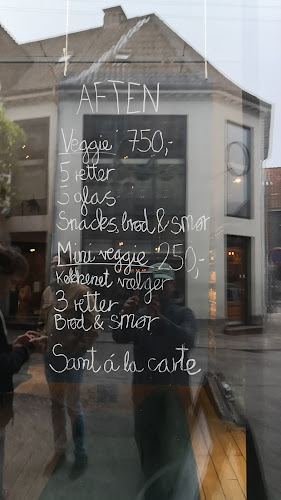 AFTEN
Veggie 750,-
5 retter
5 glas
Snacks, brød & smør
Mini veggie 250,-
Køkkenet vælger
3 retter
Brød & smør
Samt á la carte